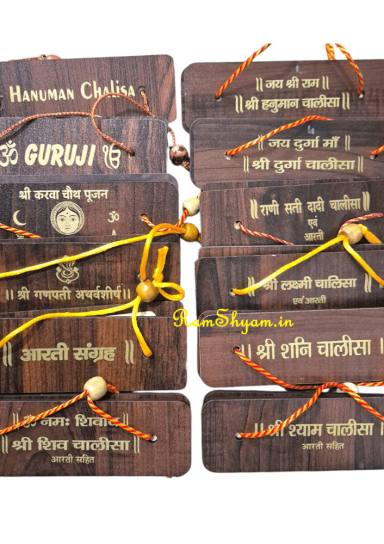 HANUMAN CHALISA
ॐ GURUJI ੴ
श्री करवा चौथ पूजन
ॐ
|| श्री गणपती अथर्वशीर्ष ||
|| आरती संग्रह ||
|| ॐ नमः शिवाय
|| श्री शिव चालीसा ||
आरती सहित
|| जय श्री राम ||
|| श्री हनुमान चालीसा ||
|| जय दुर्गा माँ ||
|| श्री दुर्गा चालीसा ||
|| राणी सती दादी चालीसा ||
एवं
आरती
|| श्री लक्ष्मी चालिसा ||
एवं आरती
RamShyam.in
|| श्री शनि चालीसा ||
|| श्री श्याम चालीसा ||
आरती सहित